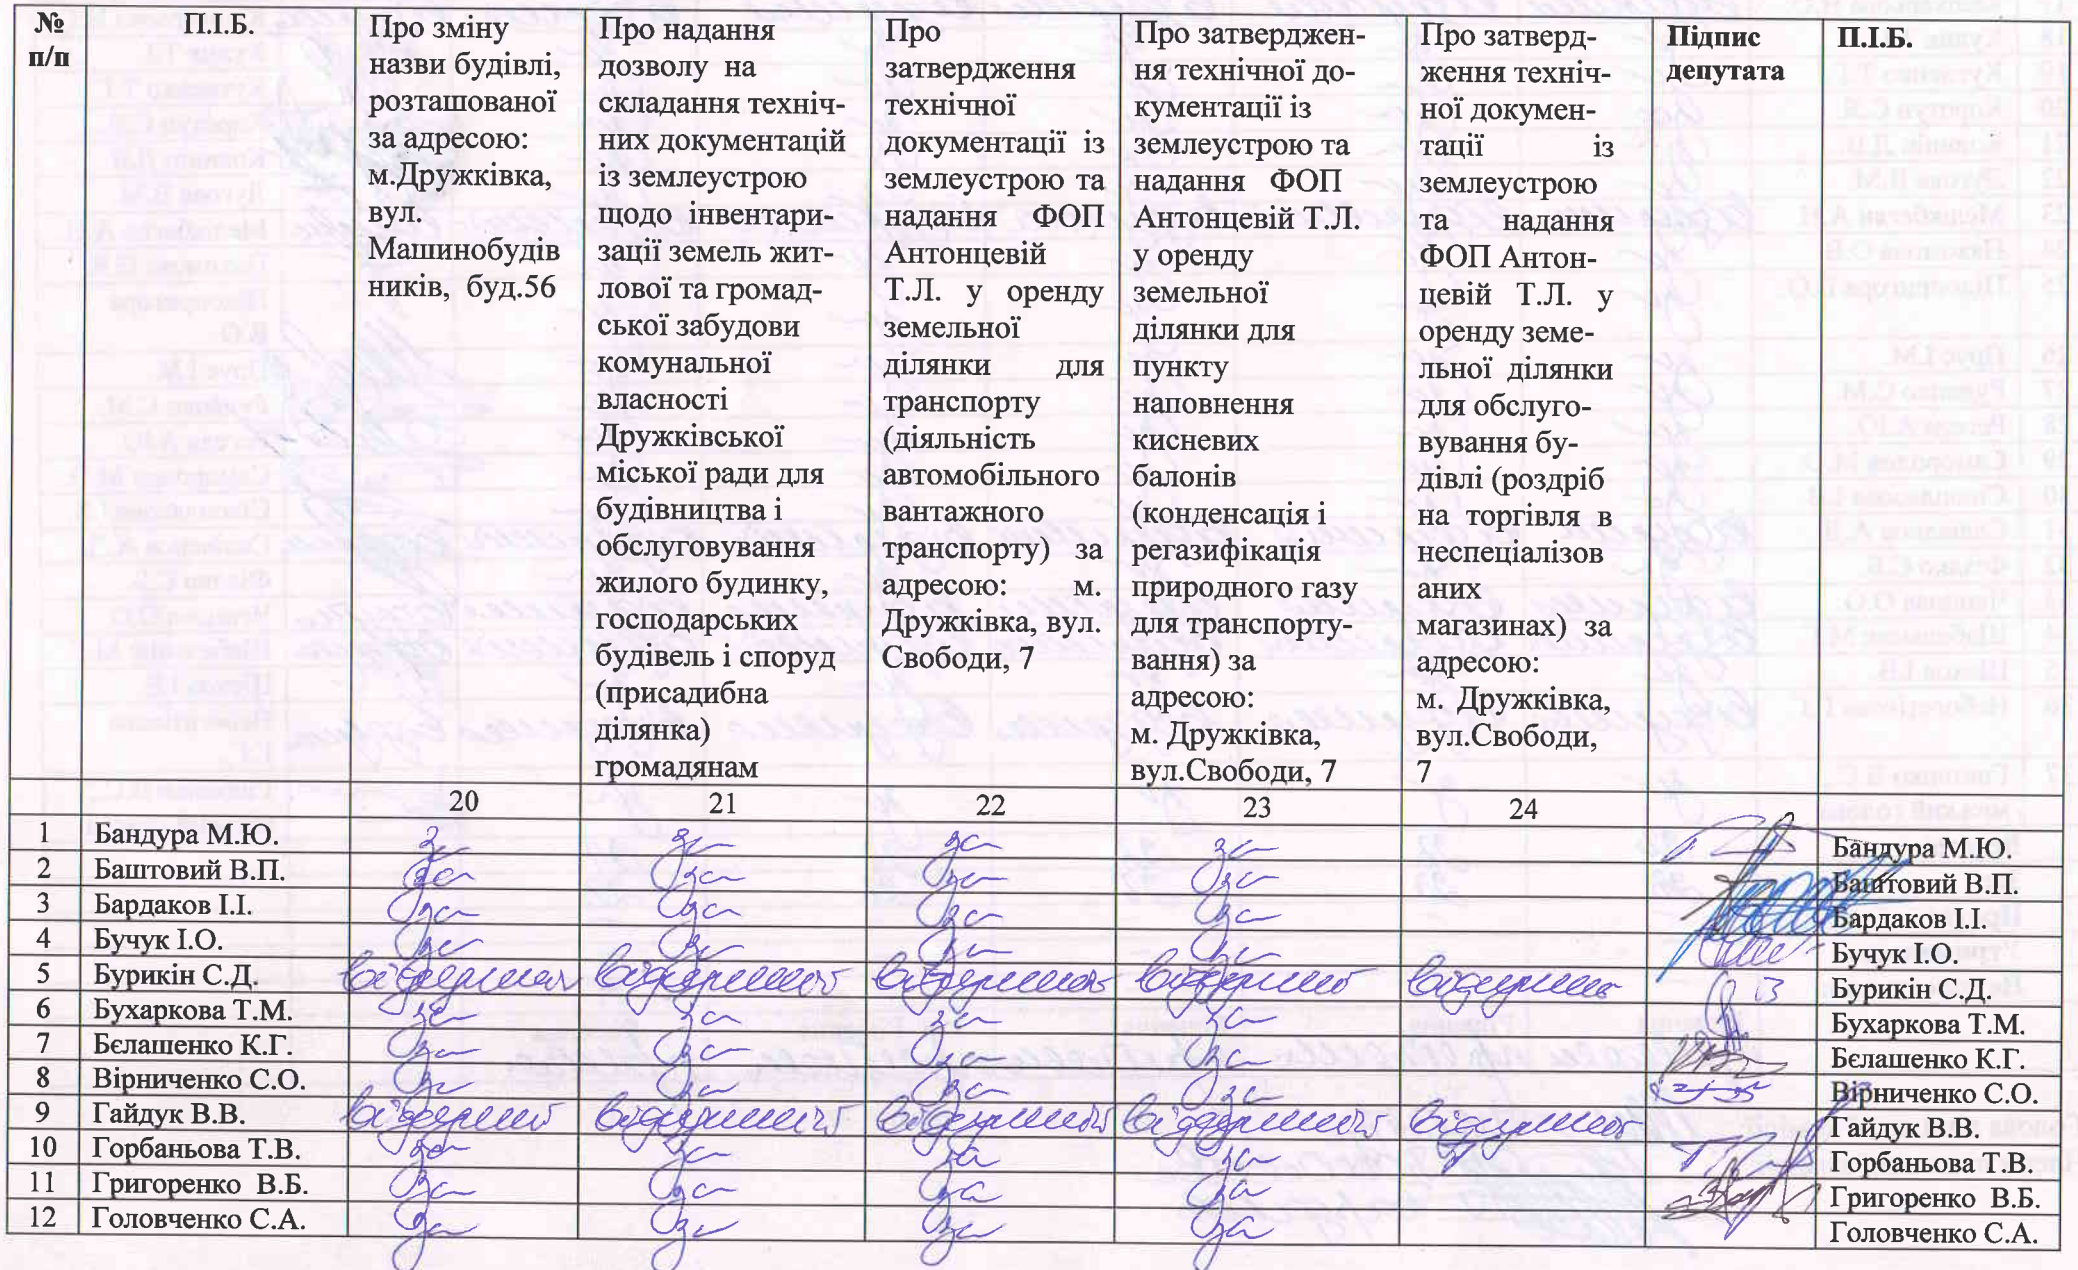 № п/п
П.І.Б.
Про зміну
назви будівлі,
розташованої
за адресою:
м.Дружківка,
вул.
Машинобудів
ників, буд.56
Про надання
дозволу на
складання техніч-
них документацій
із землеустрою
щодо інвентари-
зації земель жит-
лової та громад-
ської забудови
комунальної
власності
Дружківської
міської ради для
будівництва і
обслуговування
жилого будинку,
господарських
будівель і споруд
(присадибна
ділянка)
громадянам
Про
затвердження
технічної
документації із
землеустрою та
надання ФОП
Антонцевій
Т.Л. у оренду
земельної
ділянки для
транспорту
(діяльність
автомобільного
вантажного
транспорту) за
адресою: м.
Дружківка, вул.
Свободи, 7
Про затверджен-
ня технічної до-
кументації із
землеустрою та
надання ФОП
Антонцевій Т.Л.
у оренду
земельної
ділянки для
пункту
наповнення
кисневих
балонів
(конденсація і
регазифікація
природного газу
для транспорту-
вання) за
адресою:
м. Дружківка,
вул.Свободи, 7
Про затверд-
ження техніч-
ної докумен-
тації із
землеустрою
та надання
ФОП Антон-
цевій Т.Л. у
оренду земе-
льної ділянки
для обслуго-
вування бу-
дівлі (роздріб
на торгівля в
неспеціалізов
аних
магазинах) за
адресою:
м. Дружківка,
вул.Свободи,
7
Підпис
депутата
П.І.Б.
20 21 22 23 24
1 Бандура М.Ю. за за за за Бандура М.Ю.
2 Баштовий В.П. за за за за Баштовий В.П.
3 Бардаков І.І. за за за за Бардаков І.І.
4 Бучук І.О. за за за за Бучук І.О.
5 Бурикін С.Д. відсутній відсутній відсутній відсутній відсутній Бурикін С.Д.
6 Бухаркова Т.М. за за за за Бухаркова Т.М.
7 Бєлашенко К.Г. за за за за Бєлашенко К.Г.
8 Вірниченко С.О. за за за за Вірниченко С.О.
9 Гайдук В.В. відсутній відсутній відсутній відсутній відсутній Гайдук В.В.
10 Горбаньова Т.В. за за за за Горбаньова Т.В.
11 Григоренко В.Б. за за за за Григоренко В.Б.
12 Головченко С.А. за за за за Головченко С.А.